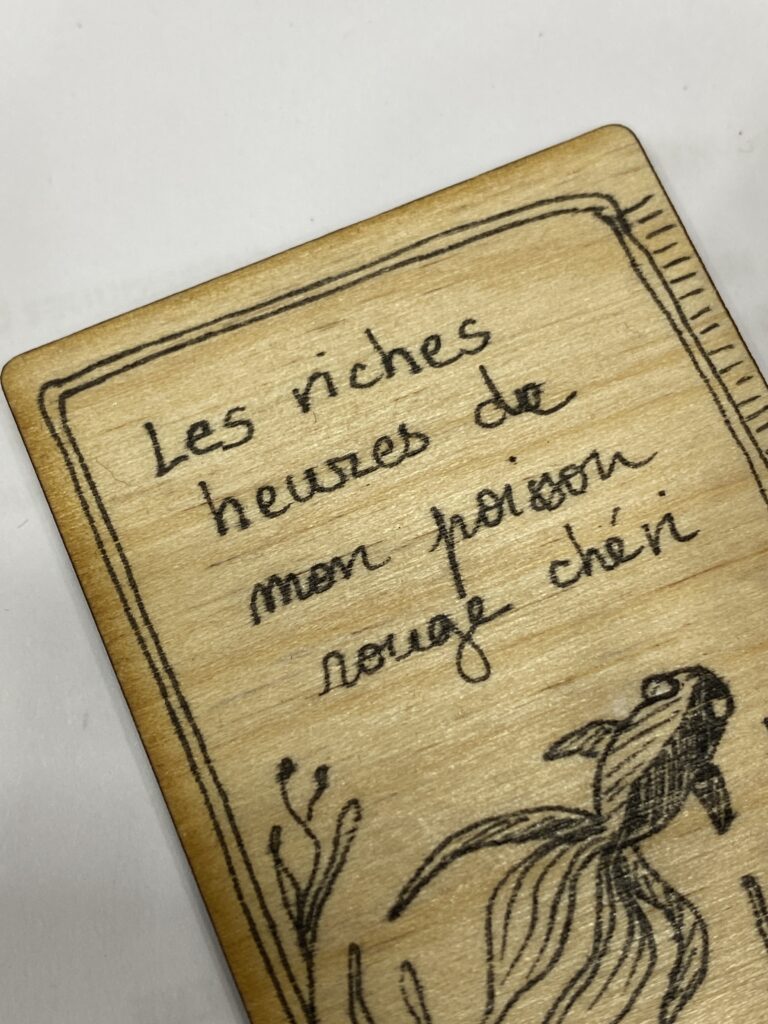 Les riches
heures de
mon poison
rouge chéri